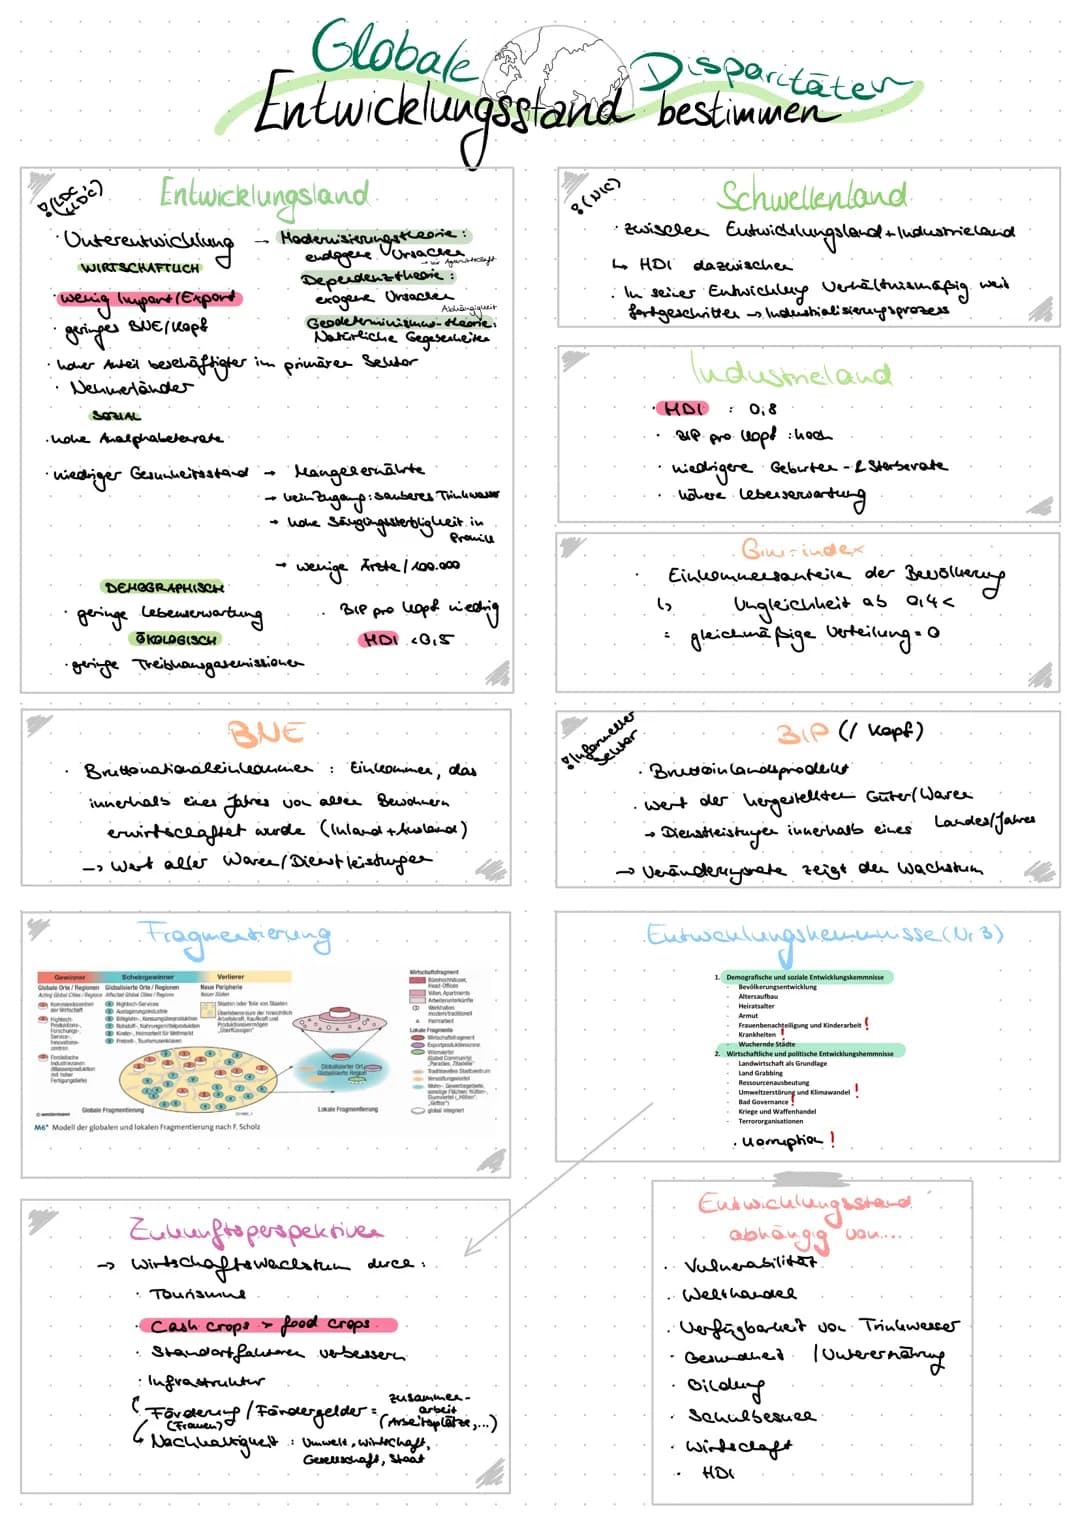 Globale Disparitäten
Entwicklungsstand bestimmen
!(LDC LLDC)
Entwicklungsland
· Unterentwicklung → Modernisierungstheorie :
endogene Ursachen
Dependenztheorie :
exogene Ursachen
Abhängigkeit
Geodeterminismus-theorie:
Natürliche Gegebenheiten
WIRTSCHAFTLICH
· wenig Import/Export
· geringes BNE/Kopf
· hoher Anteil beschäftigter im primären Sektor
· Nehmerländer
SOZIAL
· hohe Analphabetenrate
· niedriger Gesunheitsstand → Mangelernährte
→ kein Zugang: sauberes Trinkwasser
→ hohe Säuglingssterbligkeit in
Promill
→ wenige Ärzte / 100.000
DEMOGRAPHISCH
· geringe Lebenserwartung
· BIP pro Kopf niedrig
ÖKOLOGISCH
HDI <0,5
· geringe Treibhausgasemissionen
!(NIC)
Schwellenland
· zwischen Entwicklungsland + Industrieland
↳ HDI dazwischen
· In seiner Entwicklung verhältnismäßig weit
fortgeschritten → Industrialisierungsprozess
Industrieland
· HDI : 0,8
· BIP pro Kopf : hoch
· niedrigere Geburten- & Sterberate
· höhere Lebenserwartung
Gini-index
· Einkommensanteile der Bevölkerung
↳ Ungleichheit ab 0,4<
: gleichmäßige Verteilung = 0
BNE
· Bruttonationaleinkommen : Einkommen, das
innerhalb eines Jahres von allen Bewohnern
erwirtschaftet wurde (Inland + Ausland)
→ Wert aller Waren/Dienstleistungen
!Informeller Sektor
BIP (/ Kopf)
· Bruttoinlandsprodukt
· Wert der hergestellten Güter/Waren
→ Dienstleistungen innerhalb eines Landes/Jahres
→ Veränderungsrate zeigt den Wachstum
Fragmentierung
Gewinner
Scheingewinner
Verlierer
Globale Orte / Regionen
Globalisierte Orte / Regionen
Neue Peripherie
Acting Global Cities / Regions
Affected Global Cities / Regions
Neuer Süden
Kommandozentren der Wirtschaft
Hightech-Produktions-, Forschungs-, Service-, Innovations-zentren
Fordistische Industriezonen (Massenproduktion mit hoher Fertigungstiefe)
Hightech-Services
Auslagerungsindustrie
Billiglohn-, Konsumgüterproduktion
Rohstoff-, Nahrungsmittelproduktion
Kinder-, Heimarbeit für Weltmarkt
Freizeit-, Tourismuszentren
Staaten oder Teile von Staaten
Überlebensraum der hinsichtlich Arbeitskraft, Kaufkraft und Produktionsvermögen „Überflüssigen"
Globalisierter Ort
Globalisierte Region
Globale Fragmentierung
Lokale Fragmentierung
Wirtschaftsfragment
Bürohochhäuser, Head-Offices
Villen, Apartments
Arbeiterunterkünfte
Werkhallen modern/traditionell
Heimarbeit
Lokale Fragmente
Wirtschaftsfragment
Exportproduktionszone
Wohnviertel (Gated Community)
Traditionelles Stadtzentrum
Verwaltungsviertel
global integriert
© westermann
M6* Modell der globalen und lokalen Fragmentierung nach F. Scholz
Entwicklungshemmnisse (Nr 3)
1. Demografische und soziale Entwicklungskemmnisse
- Bevölkerungsentwicklung
- Altersaufbau
- Heiratsalter
- Armut
- Frauenbenachteiligung und Kinderarbeit !
- Krankheiten !
- Wuchernde Städte
2. Wirtschaftliche und politische Entwicklungshemmnisse
- Landwirtschaft als Grundlage
- Land Grabbing
- Ressourcenausbeutung
- Umweltzerstörung und Klimawandel !
- Bad Governance !
- Kriege und Waffenhandel
- Terrororganisationen
· Korruption !
Zukunftsperspektiven
→ Wirtschaftswachstum durch :
· Tourismus
· Cash crops > food crops
· Standortfaktoren verbessern
· Infrastruktur
Förderung / Fördergelder : zusammen-
arbeit
(Frauen) (Arbeitsplätze,...)
↳ Nachhaltigkeit : Umwelt, Wirtschaft,
Gesellschaft, Staat
Entwicklungsstand
abhängig von...
· Vulnerabilität
· Welthandel
· Verfügbarkeit von Trinkwasser
· Gesundheit /Unterernährung
· Bildung
· Schulbesuch
· Wirtschaft
· HDI